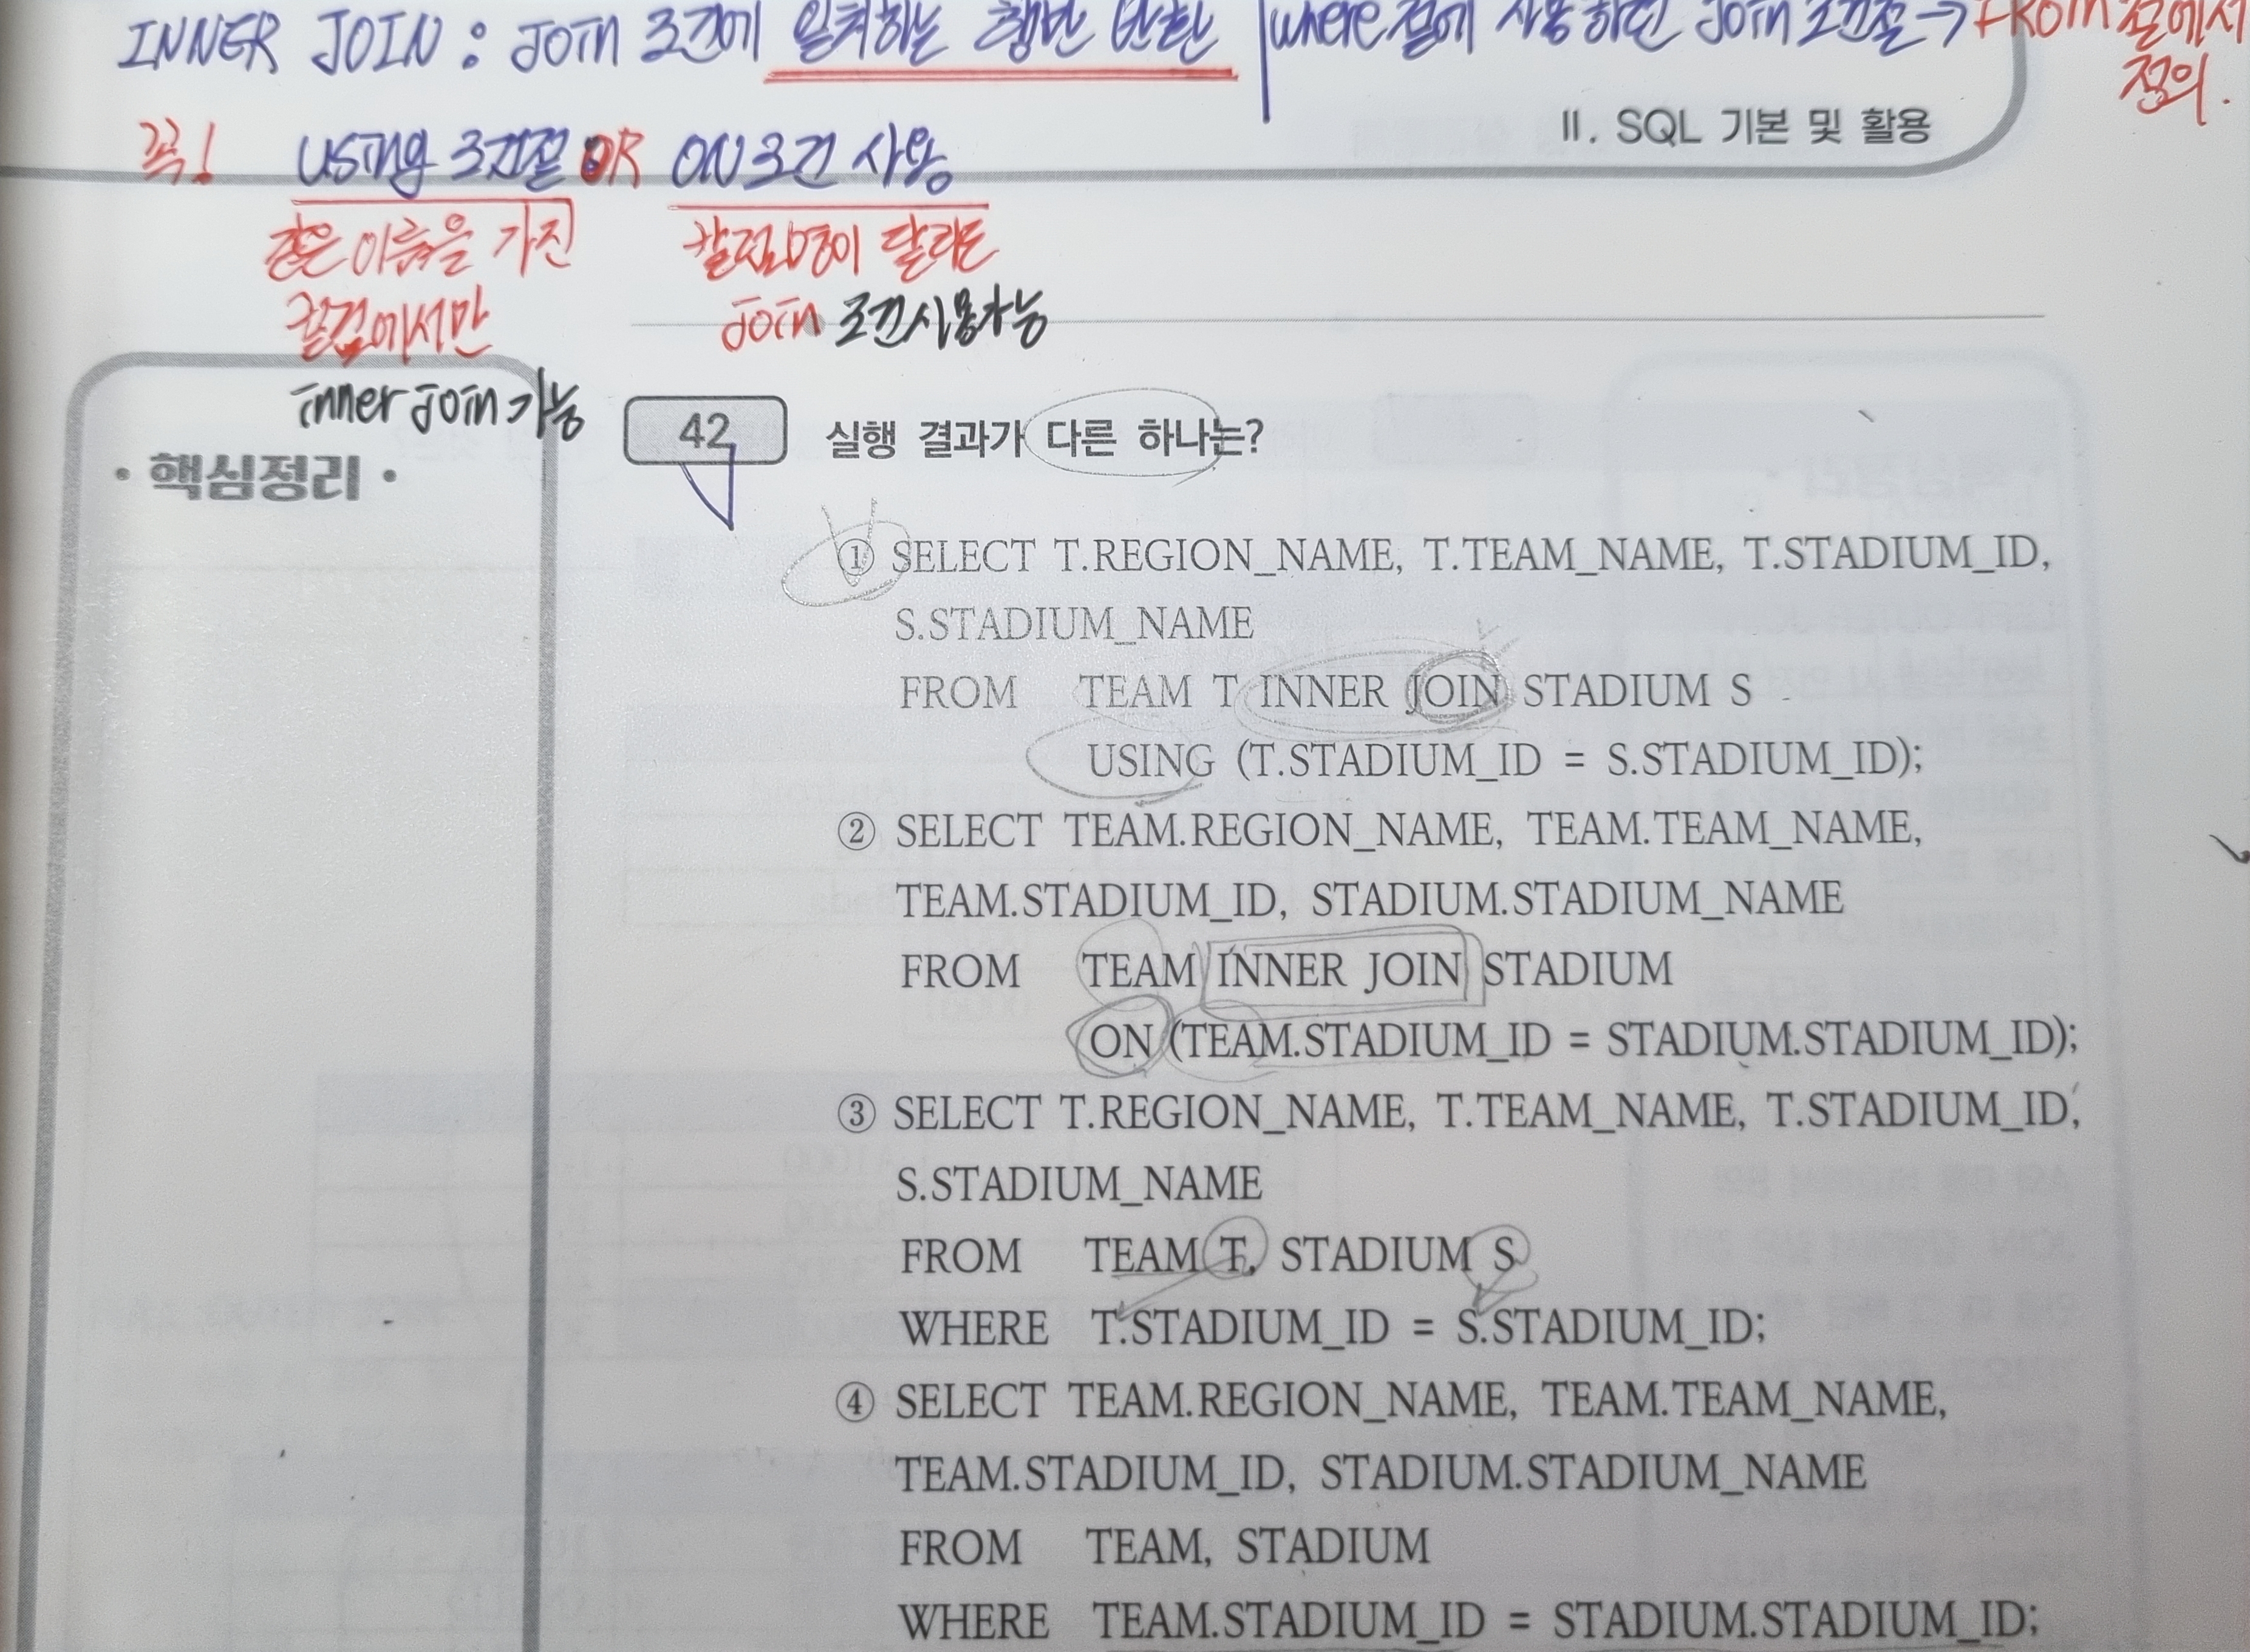 INNER JOIN : JOIN 조건에 일치하는 행만 반환 | where절에 사용하던 JOIN 조건절 → FROM 절에서
정의.
II. SQL 기본 및 활용
꼭! USING 조건절 OR ON조건 사용
같은 이름을 가진
컬럼에서만
inner join 가능
컬럼명이 달라도
join 조건사용가능
• 핵심정리 •
42 실행 결과가 다른 하나는?
① SELECT T.REGION_NAME, T.TEAM_NAME, T.STADIUM_ID,
S.STADIUM_NAME
FROM TEAM T INNER JOIN STADIUM S
USING (T.STADIUM_ID = S.STADIUM_ID);
② SELECT TEAM.REGION_NAME, TEAM.TEAM_NAME,
TEAM.STADIUM_ID, STADIUM.STADIUM_NAME
FROM TEAM INNER JOIN STADIUM
ON (TEAM.STADIUM_ID = STADIUM.STADIUM_ID);
③ SELECT T.REGION_NAME, T.TEAM_NAME, T.STADIUM_ID,
S.STADIUM_NAME
FROM TEAM T, STADIUM S
WHERE T.STADIUM_ID = S.STADIUM_ID;
④ SELECT TEAM.REGION_NAME, TEAM.TEAM_NAME,
TEAM.STADIUM_ID, STADIUM.STADIUM_NAME
FROM TEAM, STADIUM
WHERE TEAM.STADIUM_ID = STADIUM.STADIUM_ID;